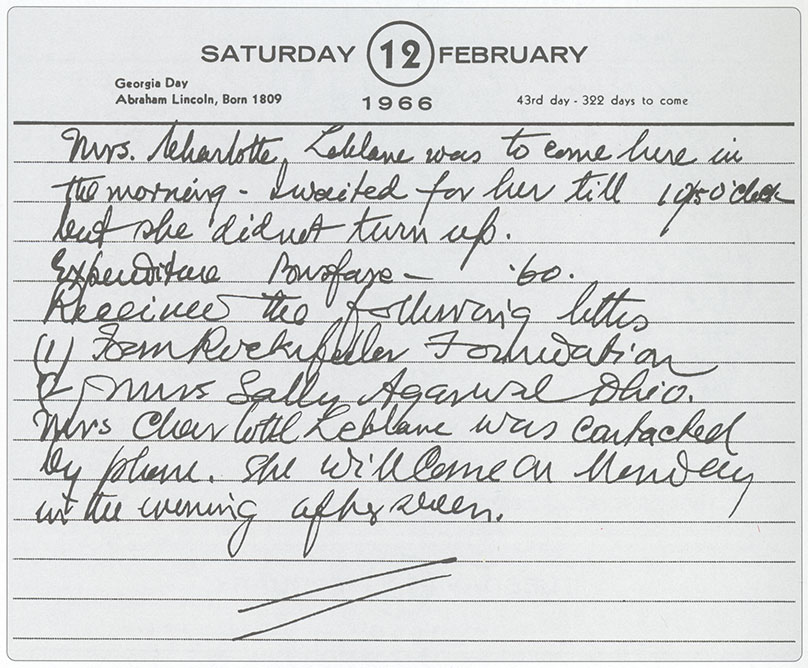 SATURDAY 12 FEBRUARY
Georgia Day
Abraham Lincoln, Born 1809
1966
43rd day - 322 days to come
Mrs. Charlotte Leblanc was to come here in
the morning - I waited for her till o'clock
but she did not turn up.
Expenditure Busfare - .60.
Received the following letters
(1) From Rockefeller Foundation
(2) Mrs Sally Agarwal Ohio.
Mrs Charlotte Leblanc was contacted
by phone. She will come on Monday
in the evening after seven.